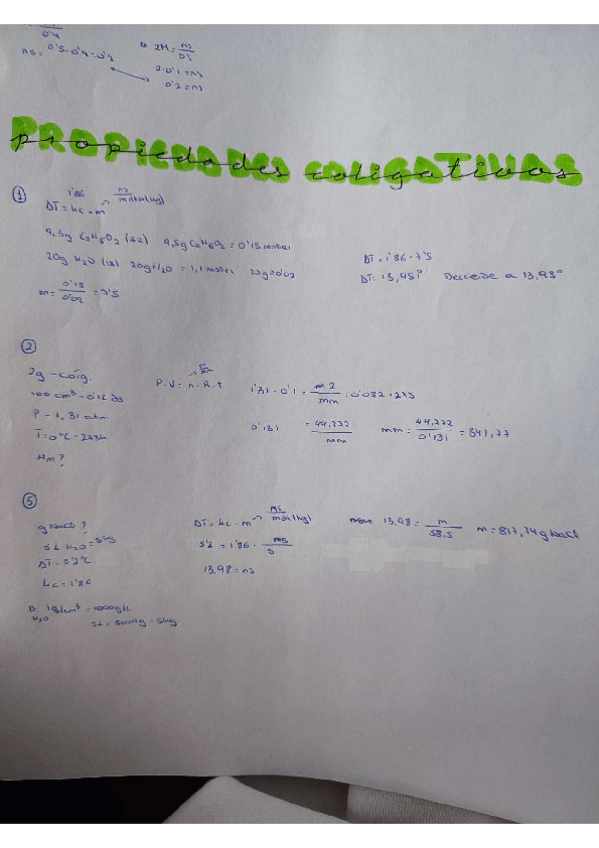 0'4
ns = 0'5·0'4 = 0'2
2M = ns
2·0'1 = ns
0'2 = ns
PROPIEDADES COLIGATIVAS
propiedades coligativas
①
1'86
ΔT = kc · m → ns
mdxol(kg)
9,5g C2H6O2 (62) 9,5g C2H6O2 = 0'15 moles
20g H2O (18) 20g H2O = 1,1 moles
m = 0'15 / 0'02 = 7'5
ΔT = 1'86 · 7'5
ΔT = 13,95 Desciende a 13,95º
②
2g
100 cm³ - 0'1L ds
P - 1,31 atm
T = 0ºC - 273K
Mm?
P·V = n·R·T
1'31 · 0'1 = 2 / mm · 0'082 · 273
0'131 = 44,772 / mm
mm = 44,772 / 0'131 = 341,77
⑤
g NaCl?
5L H2O = 5kg
ΔT = 5'2ºC
kc = 1'86
D: 1g/cm³ = 1000g/L
H2O
5L = 5000g = 5kg
ΔT = kc · m → ns
5'2 = 1'86 · ns / 5
13,98 = ns
13,98 = m / 58,5 m = 817,74 g NaCl